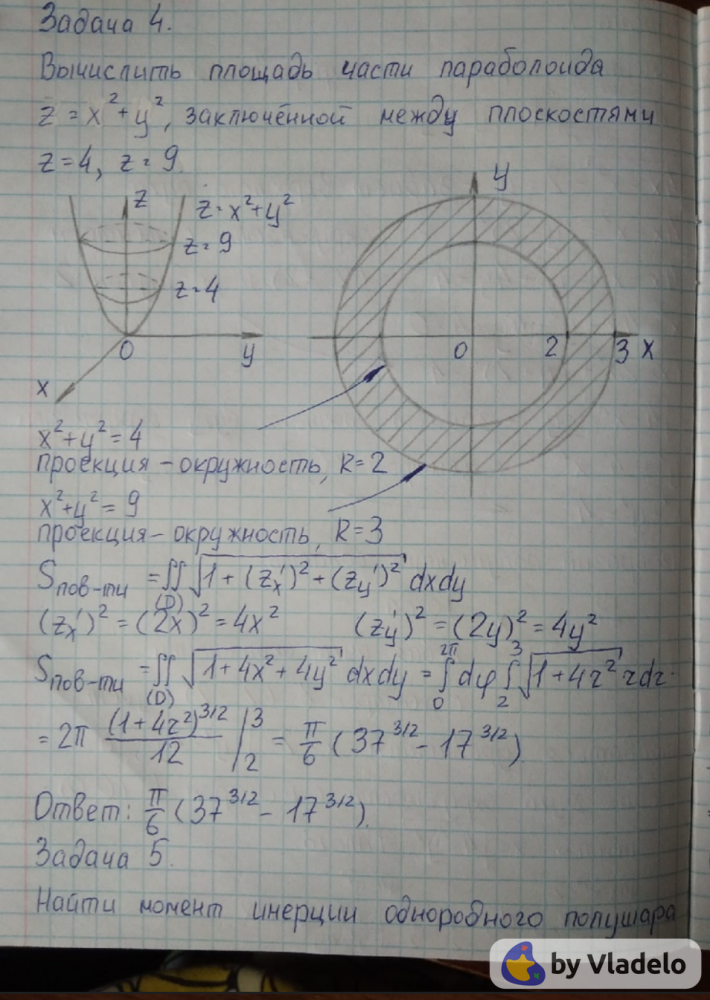 Задача 4.
Вычислить площадь части параболоида
z = x² + y², заключённой между плоскостями
z = 4, z = 9.
z
z = x² + y²
z = 9
z = 4
0
y
x
y
0
2
3
x
x² + y² = 4
проекция – окружность, R = 2
x² + y² = 9
проекция – окружность, R = 3
Sпов-ти = ∬(D) √(1 + (z'x)² + (z'y)²) dxdy
(z'x)² = (2x)² = 4x² (z'y)² = (2y)² = 4y²
Sпов-ти = ∬(D) √(1 + 4x² + 4y²) dxdy = ∫₀^2π dφ ∫₂³ √(1 + 4r²) rdr =
= 2π (1 + 4r²)^3/2 / 12 |₂³ = π/6 (37^3/2 – 17^3/2)
Ответ: π/6 (37^3/2 – 17^3/2).
Задача 5.
Найти момент инерции одноробного полушара
by Vladelo